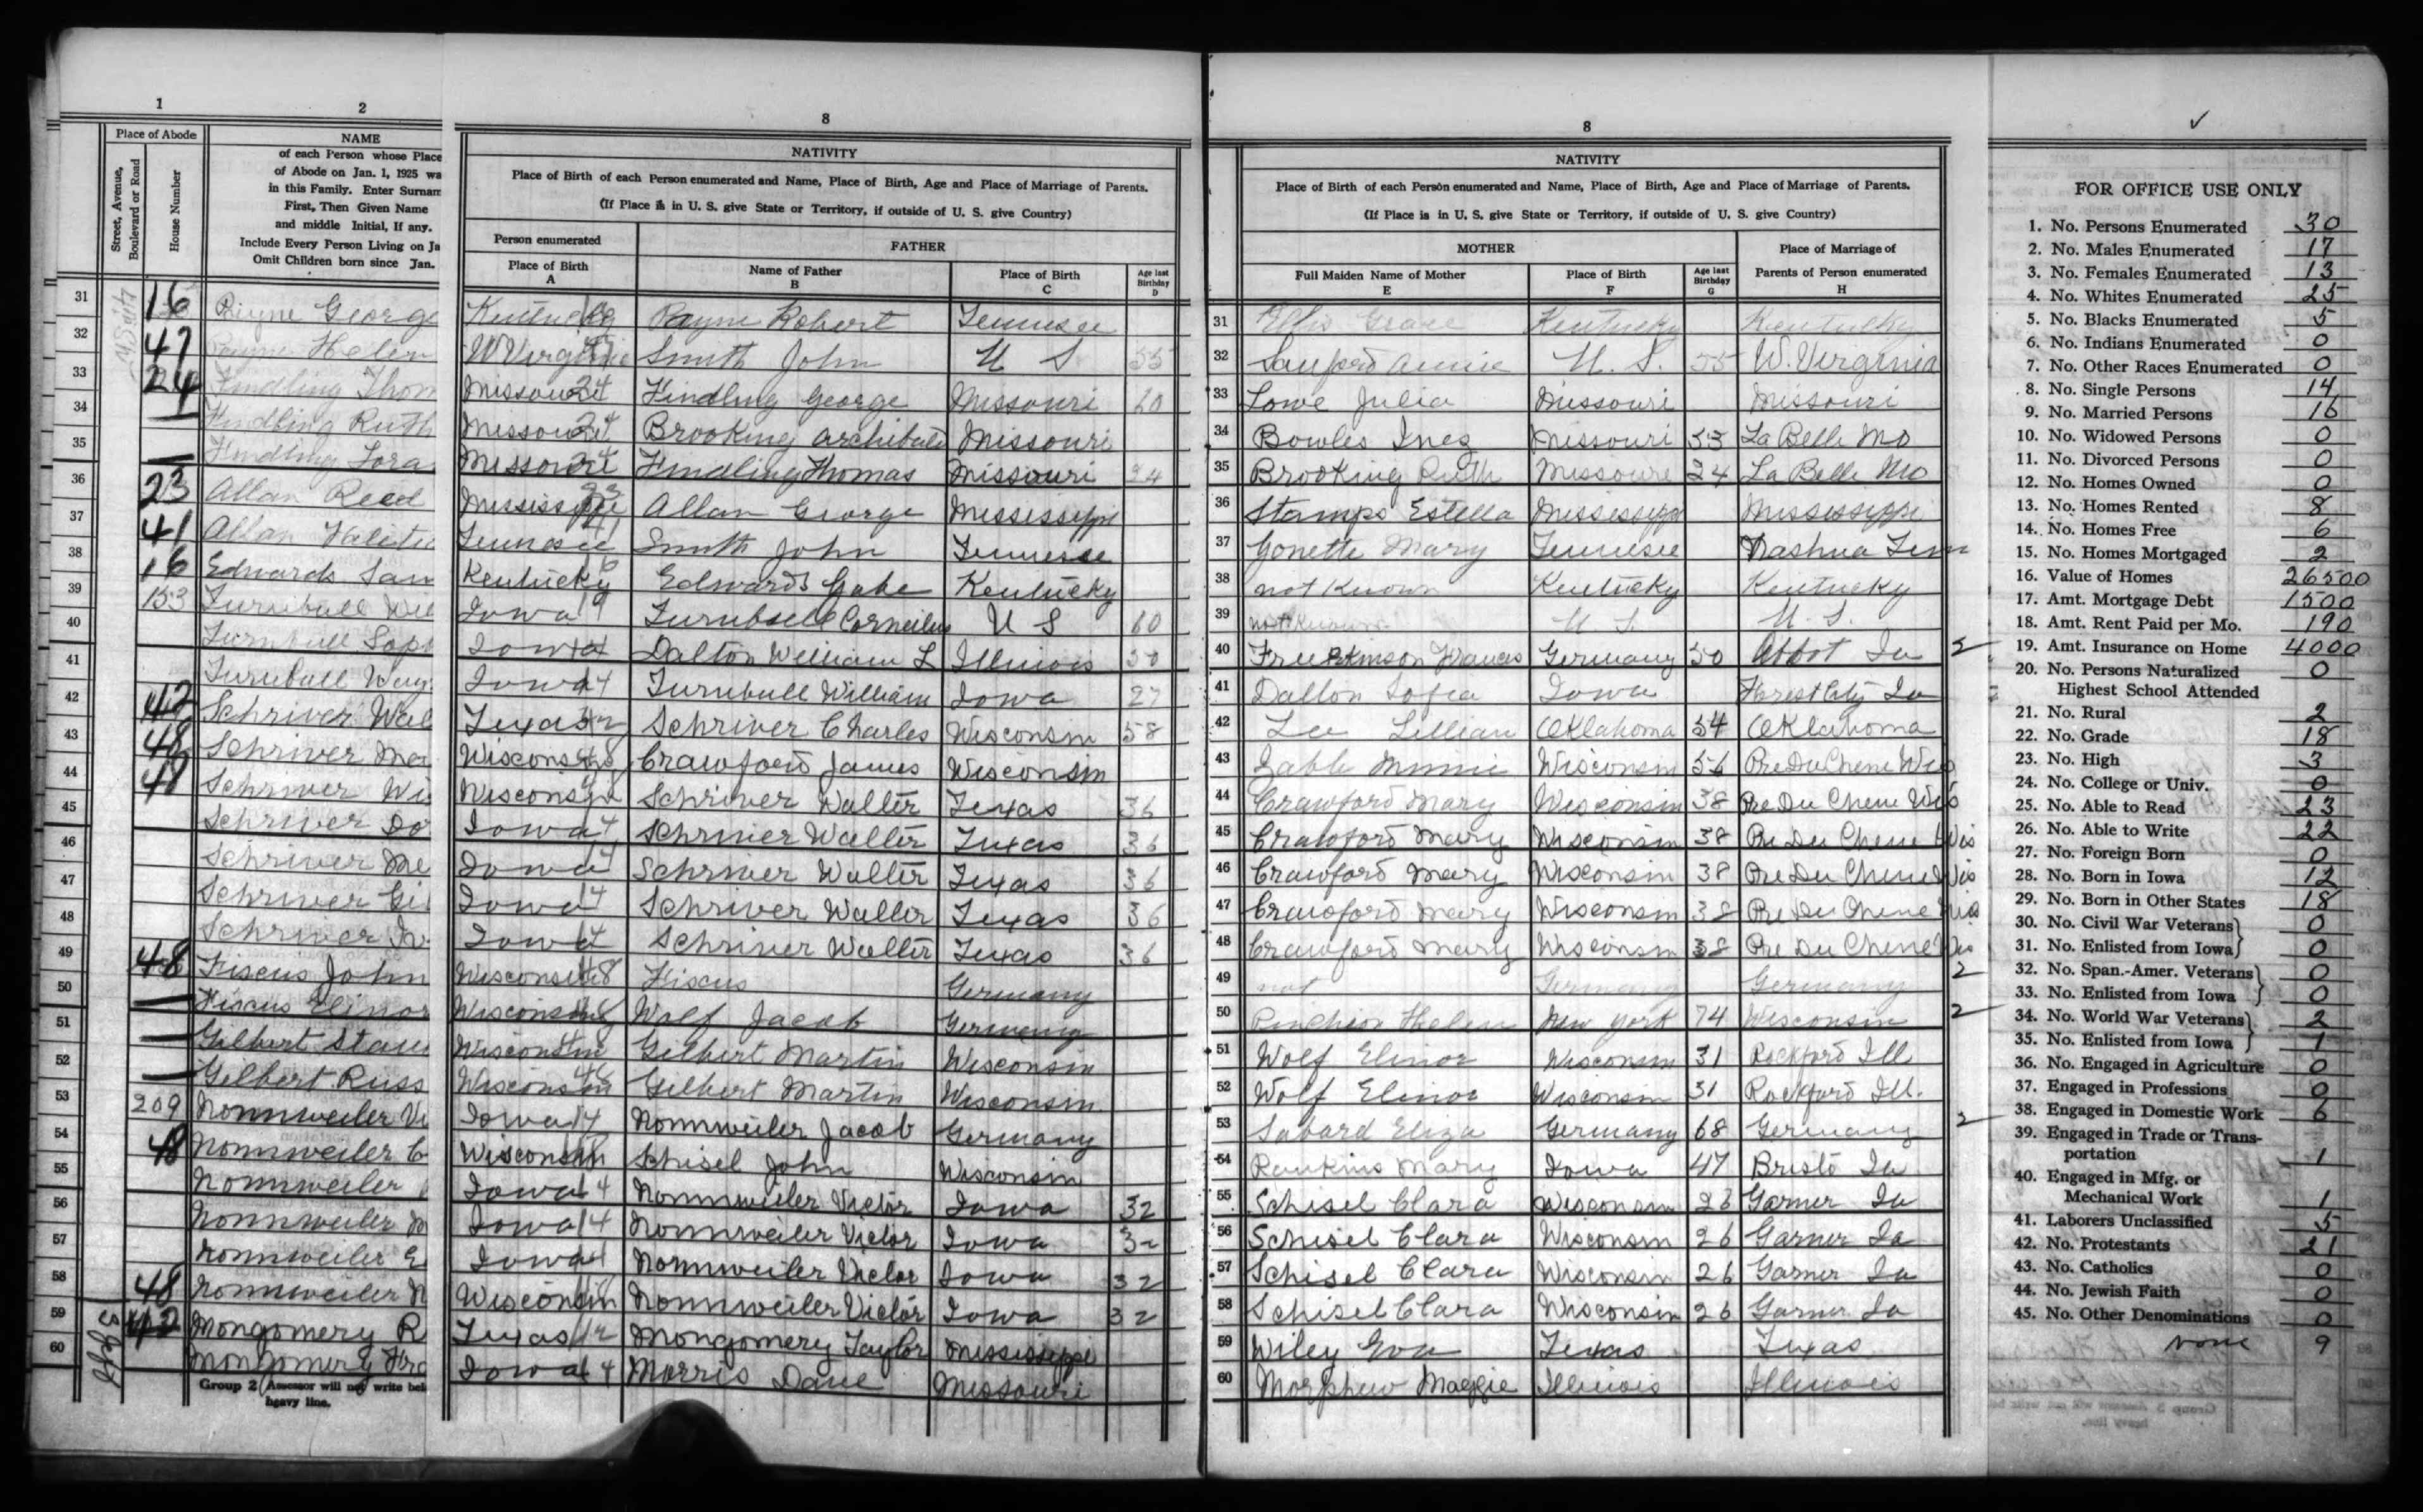 1
2
Place of Abode
Street, Avenue, Boulevard or Road
House Number
NAME
of each Person whose Place
of Abode on Jan. 1, 1925 wa
in this Family. Enter Surnam
First, Then Given Name
and middle Initial, If any.
Include Every Person Living on Ja
Omit Children born since Jan.
8
NATIVITY
Place of Birth of each Person enumerated and Name, Place of Birth, Age and Place of Marriage of Parents.
(If Place is in U. S. give State or Territory, if outside of U. S. give Country)
Person enumerated
FATHER
Place of Birth
A
Name of Father
B
Place of Birth
C
Age last Birthday
D
8
NATIVITY
Place of Birth of each Person enumerated and Name, Place of Birth, Age and Place of Marriage of Parents.
(If Place is in U. S. give State or Territory, if outside of U. S. give Country)
MOTHER
Place of Marriage of
Full Maiden Name of Mother
E
Place of Birth
F
Age last Birthday
G
Parents of Person enumerated
H
31 16 George Payne Robert Tennessee 31 Ellis Grace Kentucky Kentucky
32 47 Payne Helen W Virginia Smith John U S 55 32 Annie U. S. 55 W. Virginia
33 24 Findling Thom Missouri 24 Findling George Missouri 33 Lowe Julia Missouri Missouri
34 Findling Ruth Missouri 24 Brooking Archibald Missouri 34 Bowles Inez Missouri 53 La Belle Mo
35 Findling Missouri 24 Findling Thomas Missouri 24 35 Brooking Ruth Missouri 24 La Belle Mo
36 23 Allan Reed Mississippi 23 Allan George Mississippi 36 Stamps Estella Mississippi Mississippi
37 41 Allan Tennessee 41 Smith John Tennessee 37 Gonette Mary Tennessee Nashua Tenn
38 16 Edwards Sam Kentucky Edwards Gabe Kentucky 38 not Known Kentucky Kentucky
39 153 Turnbull Wil Iowa Turnbull Corneilus U S 60 39 not Known U. S. U. S.
40 Turnbull Soph Iowa 14 Dalton William L Illinois 50 40 Francis Germany 50 Abbot Ia 2
41 Turnbull Iowa 14 Turnbull William Iowa 27 41 Dalton Sofia Iowa Forest City Ia
42 42 Schriver Wal Texas 42 Schriver Charles Wisconsin 58 42 Lee Lillian Oklahoma 54 Oklahoma
43 48 Schriver Mar Wisconsin 48 Crawford James Wisconsin 43 Minnie Wisconsin 56 Pre Du Chene Wis
44 48 Schriver Wi Wisconsin Schriver Walter Texas 36 44 Crawford Mary Wisconsin 38 Pre Du Chene Wis
45 Schriver Do Iowa 14 Schriver Walter Texas 36 45 Crawford Mary Wisconsin 38 Pre Du Chene Wis
46 Schriver Me Iowa 14 Schriver Walter Texas 36 46 Crawford Mary Wisconsin 38 Pre Du Chene Wis
47 Schriver Gi Iowa 14 Schriver Walter Texas 36 47 Crawford Mary Wisconsin 38 Pre Du Chene Wis
48 Schriver Iowa 14 Schriver Walter Texas 36 48 Crawford Mary Wisconsin 38 Pre Du Chene Wis
49 48 Fiscus John Wisconsin 48 Fiscus Germany 49 not Germany Germany 2
50 Fiscus Elinor Wisconsin 48 Wolf Jacob Germany 50 Helen New York 74 Wisconsin 2
51 Gilbert Stan Wisconsin Gilbert Martin Wisconsin 51 Wolf Elinor Wisconsin 31 Rockford Ill
52 Gilbert Russ Wisconsin 48 Gilbert Martin Wisconsin 52 Wolf Elinor Wisconsin 31 Rockford Ill.
53 209 Nonnweiler Vi Iowa 14 Nonnweiler Jacob Germany 53 Eliza Germany 68 Germany 2
54 48 Nonnweiler C Wisconsin 48 Schisel John Wisconsin 54 Rankins Mary Iowa 47 Bristo Ia
55 Nonnweiler Iowa 14 Nonnweiler Victor Iowa 32 55 Schisel Clara Wisconsin 26 Garner Ia
56 Nonnweiler M Iowa 14 Nonnweiler Victor Iowa 32 56 Schisel Clara Wisconsin 26 Garner Ia
57 Nonnweiler E Iowa 14 Nonnweiler Victor Iowa 32 57 Schisel Clara Wisconsin 26 Garner Ia
58 48 Nonnweiler N Wisconsin Nonnweiler Victor Iowa 32 58 Schisel Clara Wisconsin 26 Garner Ia
59 42 Mongomery R Texas 42 Mongomery Taylor Mississippi 59 Wiley Texas Texas
60 Mongomery Iowa 14 Morris Dave Missouri 60 Morphew Maggie Illinois Illinois
Group 2 (Assessor will not write bel
heavy line.
FOR OFFICE USE ONLY
1. No. Persons Enumerated 30
2. No. Males Enumerated 17
3. No. Females Enumerated 13
4. No. Whites Enumerated 25
5. No. Blacks Enumerated 5
6. No. Indians Enumerated 0
7. No. Other Races Enumerated 0
8. No. Single Persons 14
9. No. Married Persons 16
10. No. Widowed Persons 0
11. No. Divorced Persons 0
12. No. Homes Owned 0
13. No. Homes Rented 8
14. No. Homes Free 6
15. No. Homes Mortgaged 2
16. Value of Homes 26500
17. Amt. Mortgage Debt 1500
18. Amt. Rent Paid per Mo. 190
19. Amt. Insurance on Home 4000
20. No. Persons Naturalized 0
Highest School Attended
21. No. Rural 2
22. No. Grade 18
23. No. High 3
24. No. College or Univ. 0
25. No. Able to Read 23
26. No. Able to Write 22
27. No. Foreign Born 0
28. No. Born in Iowa 12
29. No. Born in Other States 18
30. No. Civil War Veterans 0
31. No. Enlisted from Iowa 0
32. No. Span.-Amer. Veterans 0
33. No. Enlisted from Iowa 0
34. No. World War Veterans 2
35. No. Enlisted from Iowa 1
36. No. Engaged in Agriculture 0
37. Engaged in Professions 0
38. Engaged in Domestic Work 6
39. Engaged in Trade or Trans-
portation 1
40. Engaged in Mfg. or
Mechanical Work 1
41. Laborers Unclassified 5
42. No. Protestants 21
43. No. Catholics 0
44. No. Jewish Faith 0
45. No. Other Denominations 0
none 9